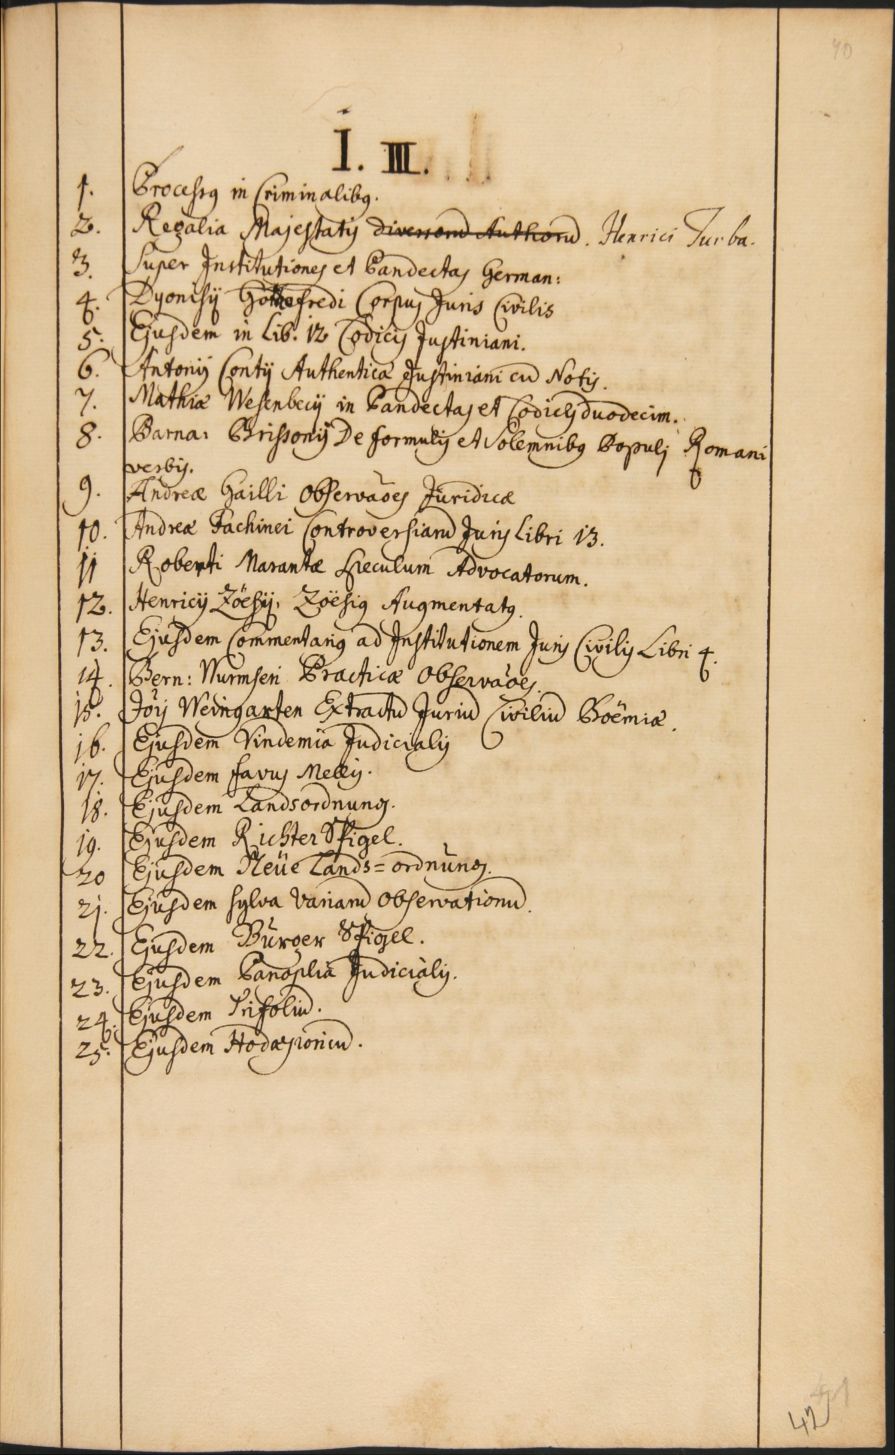 40
I. III.
1. Processꝰ in Criminalibꝰ.
2. Regalia Majestatis diversorū Authorū. Henrici Turba.
3. Super Institutiones et Pandectas German:
4. Dyonisÿ Gothefredi Corpus Juris Civilis
5. Ejusdem in Lib. 12 Codicis Justiniani.
6. Antonÿ Contÿ Authentica Justiniani cū Notis.
7. Mathiæ Wesenbecÿ in Pandectas et Codicis duodecim.
8. Barna: Brissonÿ De formulis et Solemnibꝰ Populj Romani
verbis.
9. Andreæ Gailli Observāōes Juridicæ
10. Andreæ Fachinei Controversiarū Juris Libri 13.
11 Roberti Marantæ Speculum Advocatorum.
12. Henricÿ Zöesÿ, Zöesiꝰ Augmentatꝰ.
13. Ejusdem Commentariꝰ ad Institutionem Juris Civilis Libri 4.
14. Bern: Wurmseri Practicæ Observāōes.
15. Jōis Weingarten Extractū Juriū Civiliū Boëmiæ.
16. Ejusdem Vindemia Judicialis
17. Ejusdem favus Mellis.
18. Ejusdem Landsordnung.
19. Ejusdem Richter Spigel.
20 Ejusdem Neüe Lands=ordnung.
21. Ejusdem sylva Variarū Observationū.
22. Ejusdem Burger Spigel.
23. Ejusdem Panoplia Judicialis.
24. Ejusdem Trifoliū.
25. Ejusdem
42